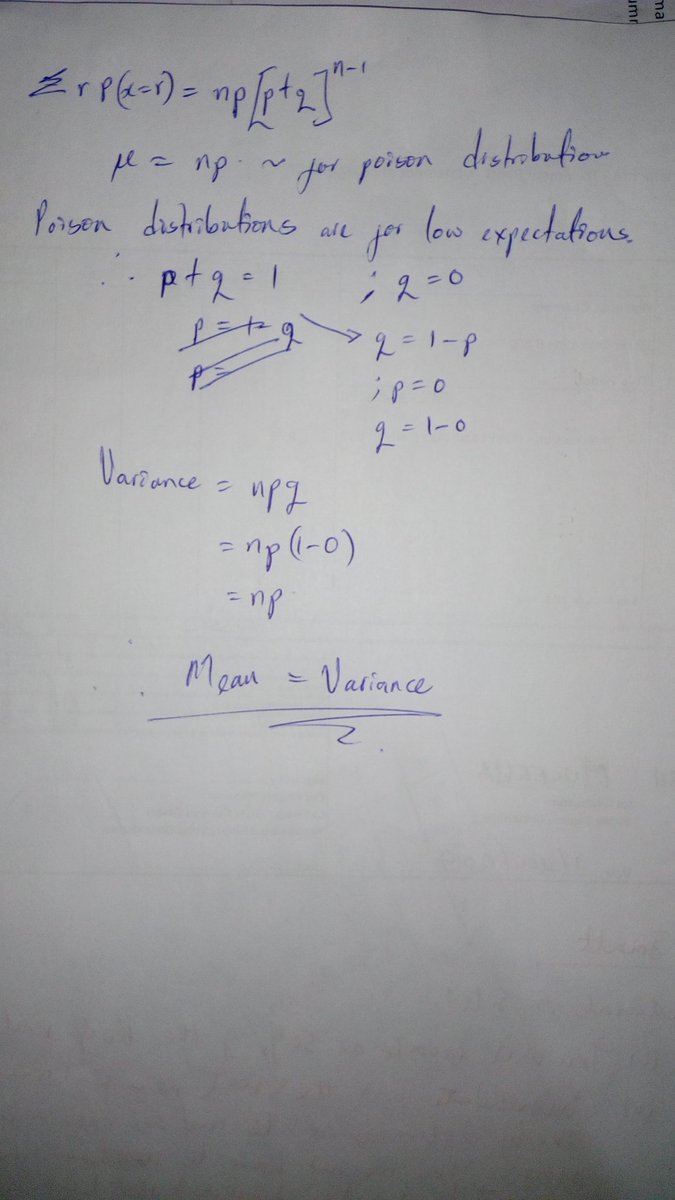 Σ r P(x=r) = np[p+q]^n-1
μ = np. ~ for poison distribution
Poison distributions are for low expectations.
∴ p+q = 1 ; q=0
p = 1- q → q = 1-p
p = ; p=0
q = 1-0
Variance = npq
= np(1-0)
= np.
∴ Mean = Variance